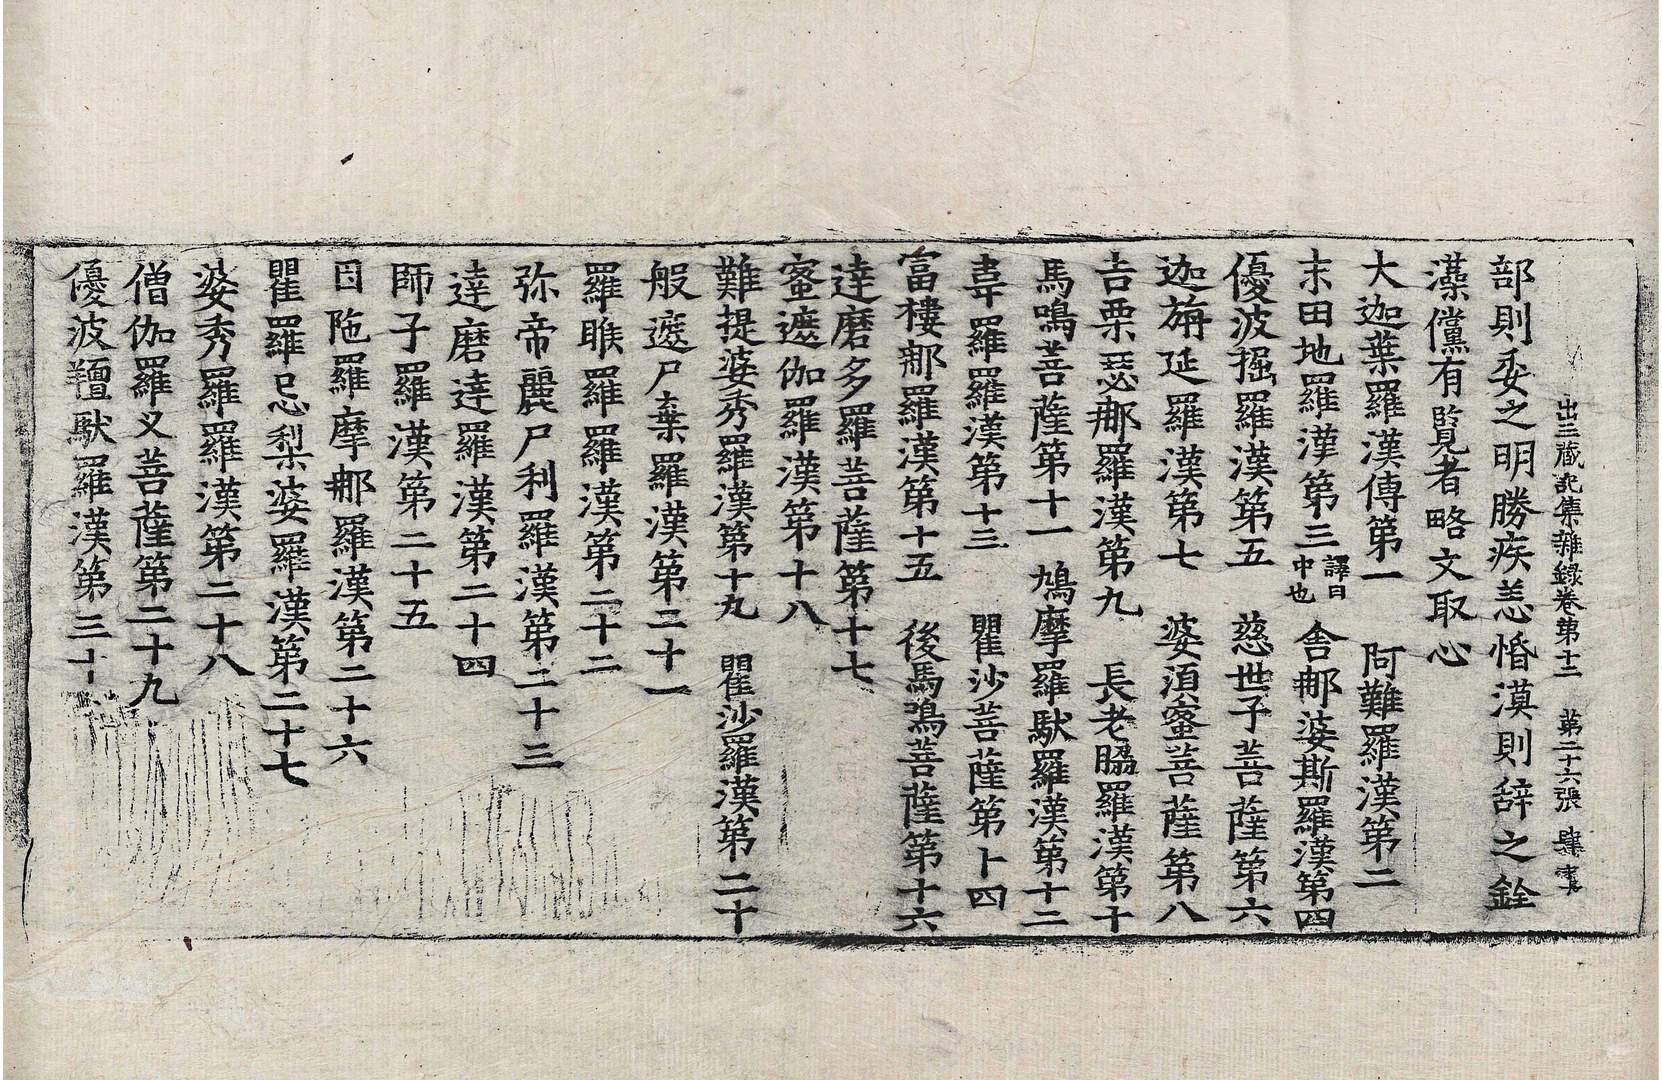 出三藏記集雜錄卷第十二　第二十六張　肆書
部則委之明勝疾恙惛漠則辞之銓
藻儻有覧者略文取心
大迦葉羅漢傳第一　阿難羅漢第二
末田地羅漢第三譯曰中也　舍那婆斯羅漢第四
優波掘羅漢第五　慈世子菩薩第六
迦旃延羅漢第七　婆須蜜菩薩第八
吉栗瑟那羅漢第九　長老脇羅漢第十
馬鳴菩薩第十一　鳩摩羅馱羅漢第十二
韋羅羅漢第十三　瞿沙菩薩第十四
富樓那羅漢第十五　後馬鳴菩薩第十六
達磨多羅菩薩第十七
蜜遮伽羅漢第十八
難提婆秀羅漢第十九　瞿沙羅漢第二十
般遮尸棄羅漢第二十一
羅睺羅羅漢第二十二
弥帝麗尸利羅漢第二十三
達磨達羅漢第二十四
師子羅漢第二十五
因陁羅摩那羅漢第二十六
瞿羅忌梨婆羅漢第二十七
婆秀羅羅漢第二十八
僧伽羅叉菩薩第二十九
優波羶馱羅漢第三十